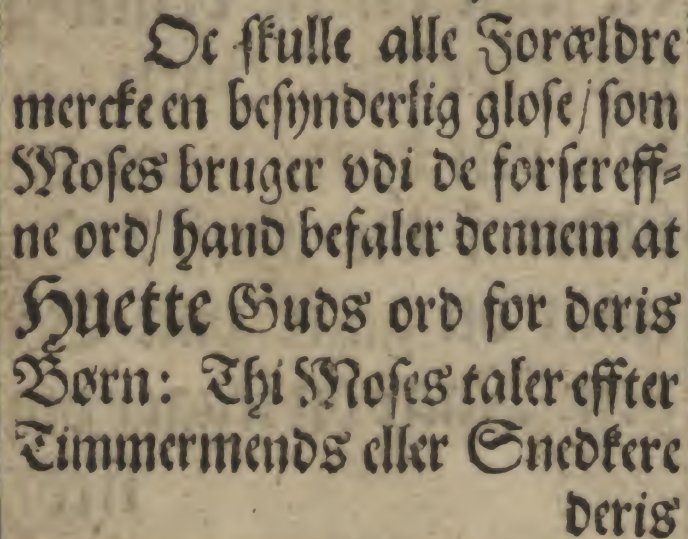 Oc ſkulle alle Forældre
mercke en beſynderlig gloſe/ ſom
Moſes bruger vdi de forſcreff⸗
ne ord/ hand befaler dennem at
Huette Guds ord for deris
Børn: Thi Moſes taler effter
Timmermends eller Snedkere
deris